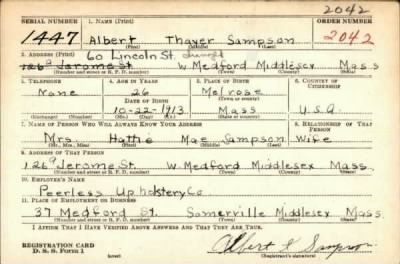 2042
SERIAL NUMBER 1. NAME (Print) ORDER NUMBER
1447 Albert Thayer Sampson 2042
(First) (Middle) (Last)
2. ADDRESS (Print) 60 Lincoln St.
126a Jerome St. W Medford Middlesex Mass
(Number and street or R. F. D. number) (Town) (County) (State)
3. TELEPHONE 4. AGE IN YEARS 5. PLACE OF BIRTH 6. COUNTRY OF CITIZENSHIP
None 26 Melrose
DATE OF BIRTH (Town or county)
10-22-1913 Mass U.S.A.
(Exchange) (No.) (Mo.) (Day) (Yr.) (State or country)
7. NAME OF PERSON WHO WILL ALWAYS KNOW YOUR ADDRESS 8. RELATIONSHIP OF THAT PERSON
Mrs. Hattie Mae Sampson Wife
(Mr., Mrs., Miss) (First) (Middle) (Last)
9. ADDRESS OF THAT PERSON
126a Jerome St. W Medford Middlesex Mass.
(Number and street or R. F. D. number) (Town) (County) (State)
10. EMPLOYER'S NAME
Peerless Upholstery Co
11. PLACE OF EMPLOYMENT OR BUSINESS
37 Medford St. Somerville Middlesex Mass.
(Number and street or R. F. D. number) (Town) (County) (State)
I AFFIRM THAT I HAVE VERIFIED ABOVE ANSWERS AND THAT THEY ARE TRUE.
REGISTRATION CARD
D. S. S. Form 1 (over) Albert T. Sampson
(Registrant's signature)